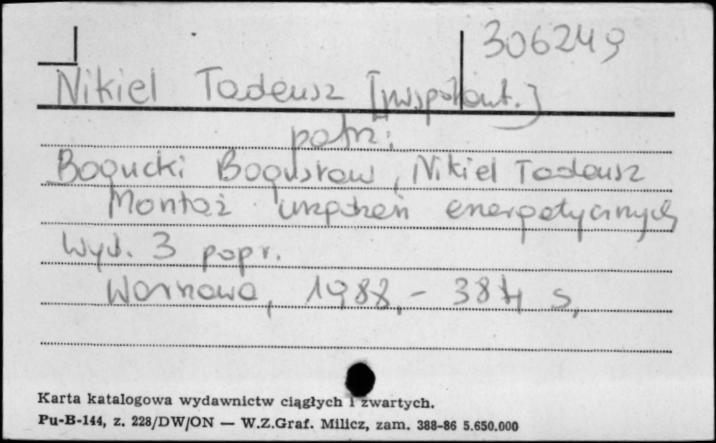 306249
Nikiel Tadeusz [współaut.]
patrz:
Bogucki Bogusław, Nikiel Tadeusz
Montaż urządzeń energetycznych
Wyd. 3 popr.
Warszawa, 1988.- 384 s.
Karta katalogowa wydawnictw ciągłych i zwartych.
Pu-B-144, z. 228/DW/ON — W.Z.Graf. Milicz, zam. 388-86 5.650.000